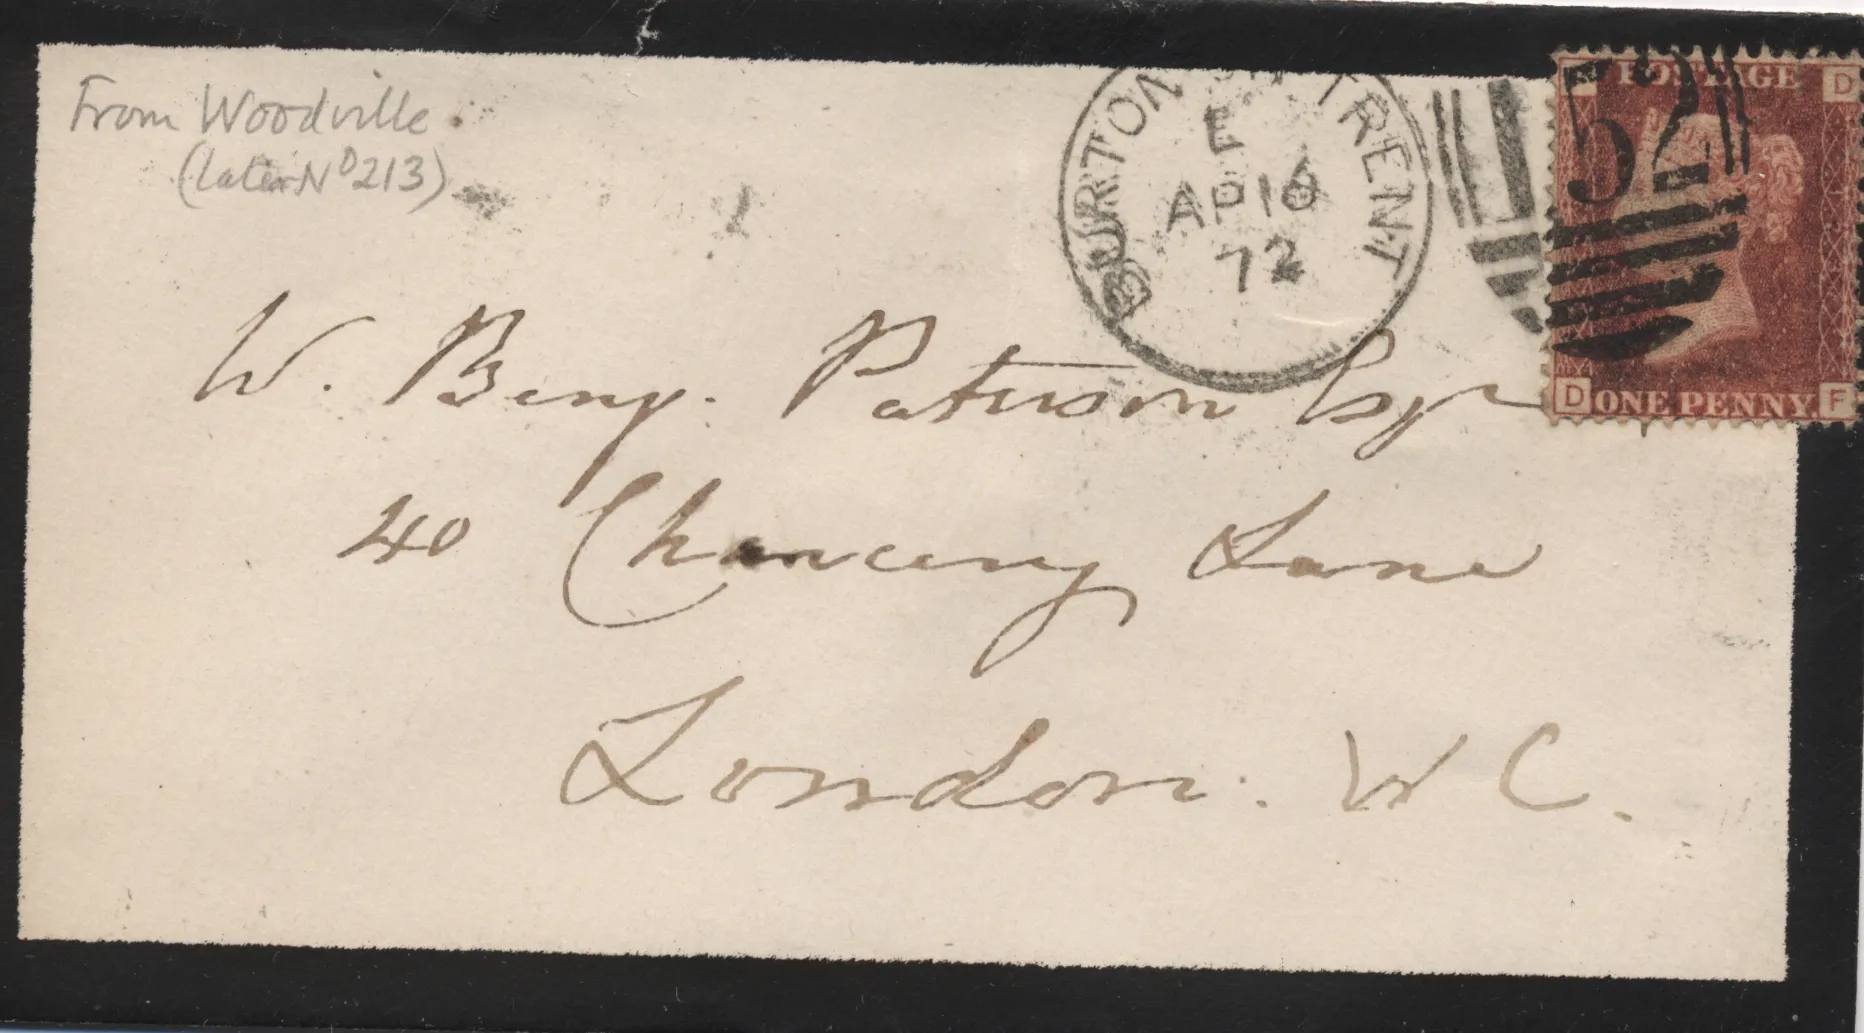 From Woodville
(later Nº 213)
BURTON ON TRENT
E
AP 16
72
52
POSTAGE
D
D ONE PENNY F
W. Benj. Paterson Esqr
40 Chancery Lane
London. W C.